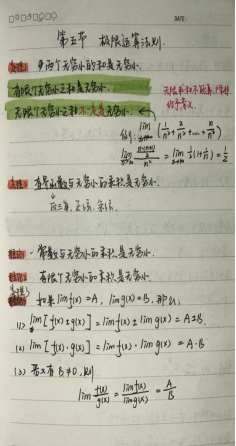 DATE:
第五节 极限运算法则.
定理1 两个无穷小的和是无穷小.
有限个无穷小之和是无穷小.
无限个无穷小之和不一定是无穷小.
无限求和不能算,除非
例: lim n→∞ (1/n² + 2/n² + … + n/n²)
= lim n→∞ = lim n→∞ ½(1+1/n) = ½
定理2 有界函数与无穷小的乘积是无穷小.
反三角、正弦、余弦.
推论1 常数与无穷小的乘积是无穷小.
推论2 有限个无穷小的乘积是无穷小.
定理3 如果 lim f(x) = A, lim g(x) = B, 那么
(1) lim [f(x) ± g(x)] = lim f(x) ± lim g(x) = A ± B.
(2) lim [f(x) · g(x)] = lim f(x) · lim g(x) = A · B
(3) 若又有 B ≠ 0, 则
lim f(x)/g(x) = lim f(x)/lim g(x) = A/B